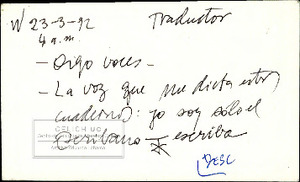 V 23-3-92 Traductor
4 a.m.
- Oigo voces -
- La voz que me dicta estos
cuadernos: yo soy sólo el
escribano escriba
DESC
CELICH UC